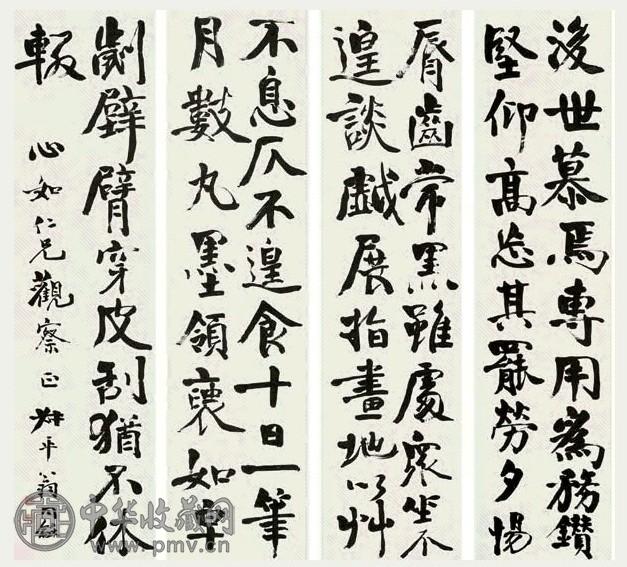 後世慕焉專用為務鑽
堅仰高忘其罷勞夕惕
脣齒常黑雖處衆坐不
遑談戲展指畫地以艸
不息仄不遑食十日一筆
月數丸墨領褏如皁
劌壁臂穿皮刮猶不休
輟
心如仁兄觀察正 叔平翁同龢
中华收藏网
www.pmv.cn